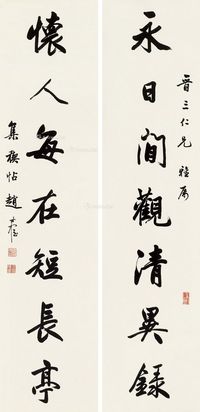 晉三仁兄 雅属
永日間觀清異錄
懷人每在短長亭
集禊帖 趙